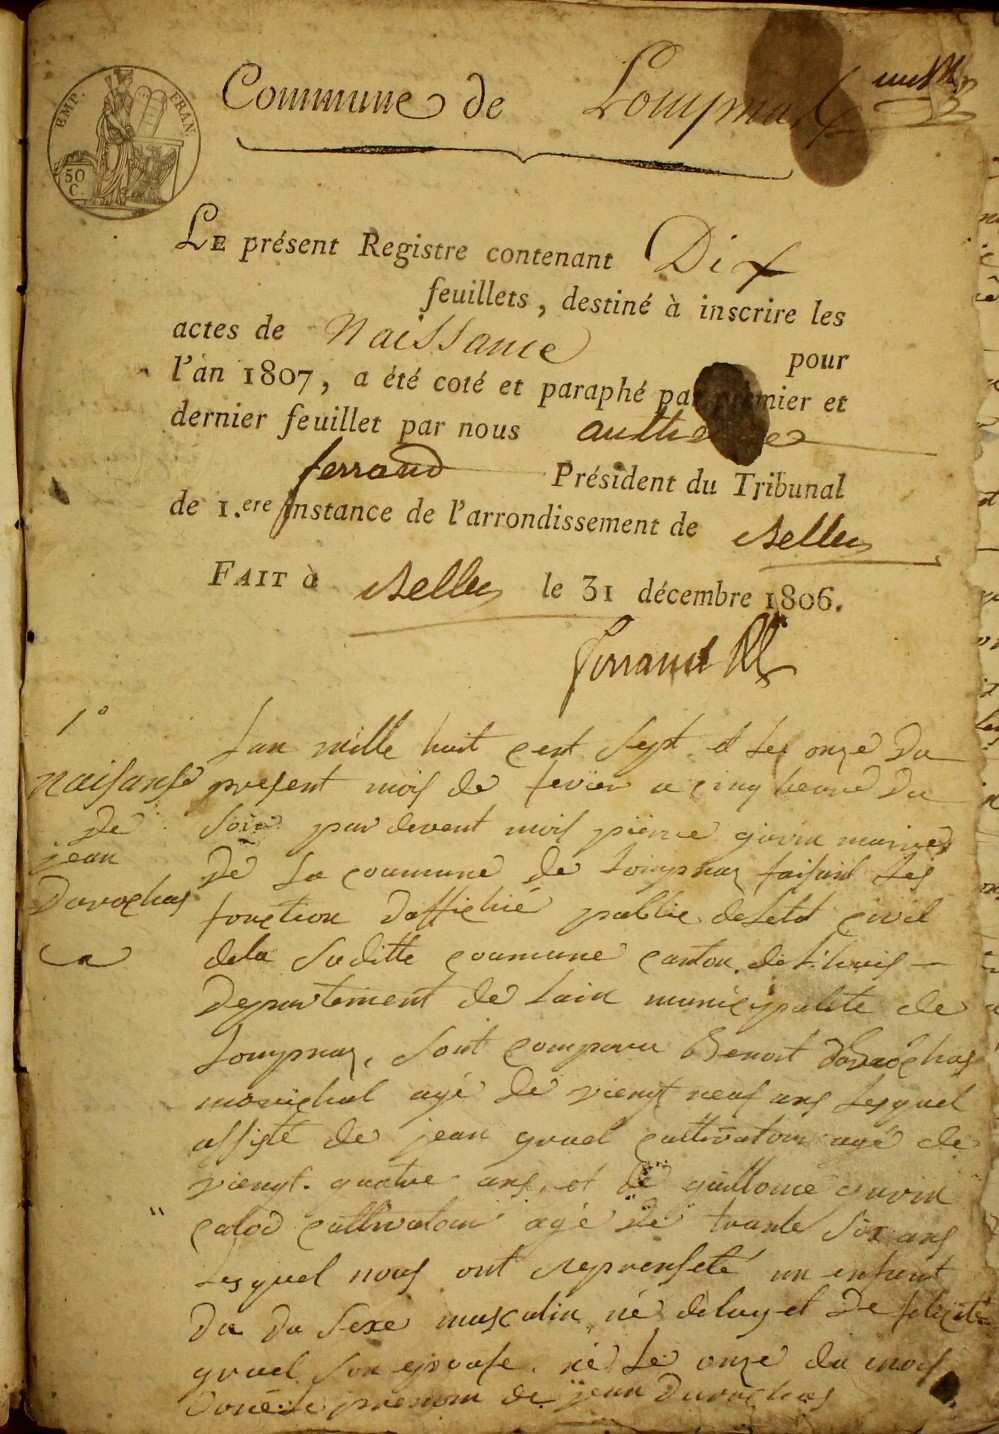 EMP. FRAN.
50
C.
Commune de Lompnas
LE présent Registre contenant Dix
feuillets, destiné à inscrire les
actes de Naissance pour
l'an 1807, a été coté et paraphé par premier et
dernier feuillet par nous anthelme
ferrand Président du Tribunal
de 1.ere Instance de l'arrondissement de Belley
FAIT à Belley le 31 décembre 1806.
Ferrand
1°
naisanse
de
jean
Durochas
Lan mille huit cent sept et les onze du
present mois de fevier a cinq heure du
soir par devent mois pierre guvin maire
de la coumune de Lompnas faisant les
fonction daffichié public deletat civil
dela suditte coumune canton de Lhuis
departement de lain municipalite de
Lompnas, sont comparu Benoit Durochas
marichal agé de viengt neuf ans lesquel
assisté de jean gruel cultivatour agé de
viengt quatre ans, et de guillome guvin
calod cultivatour agé de trante six ans
lesquel nous ont represseté un enfent
du du sexe masculin né deluy et de felicité
gruel son epouse né le onze du mois
doné le prenom de jean Durochas